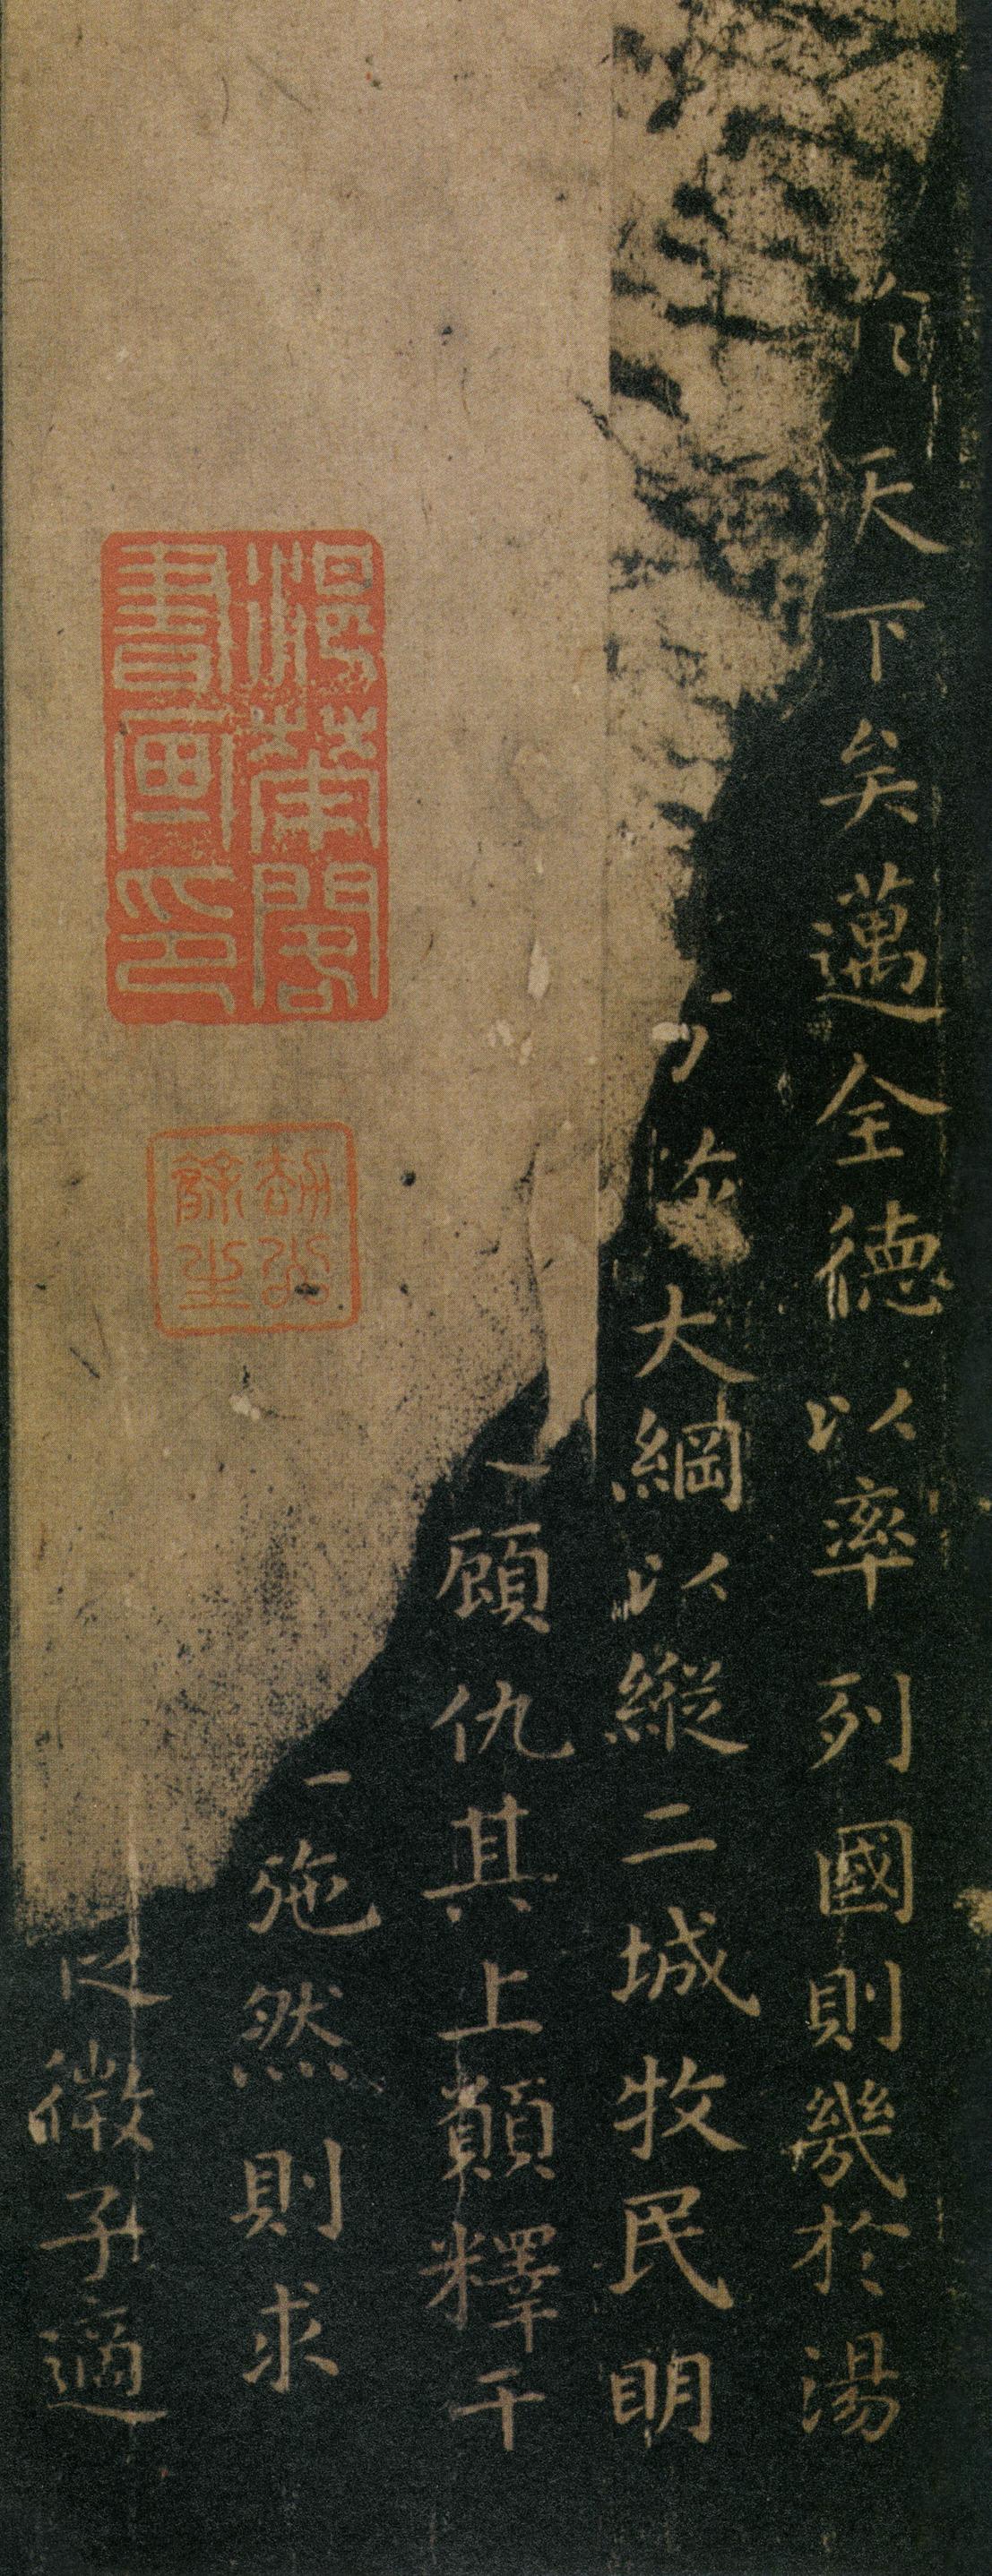 於天下矣邁全德以率列國則幾於湯
大綱以縱二城牧民明
顧仇其上願釋干
施然則求
以微子適
書畫印